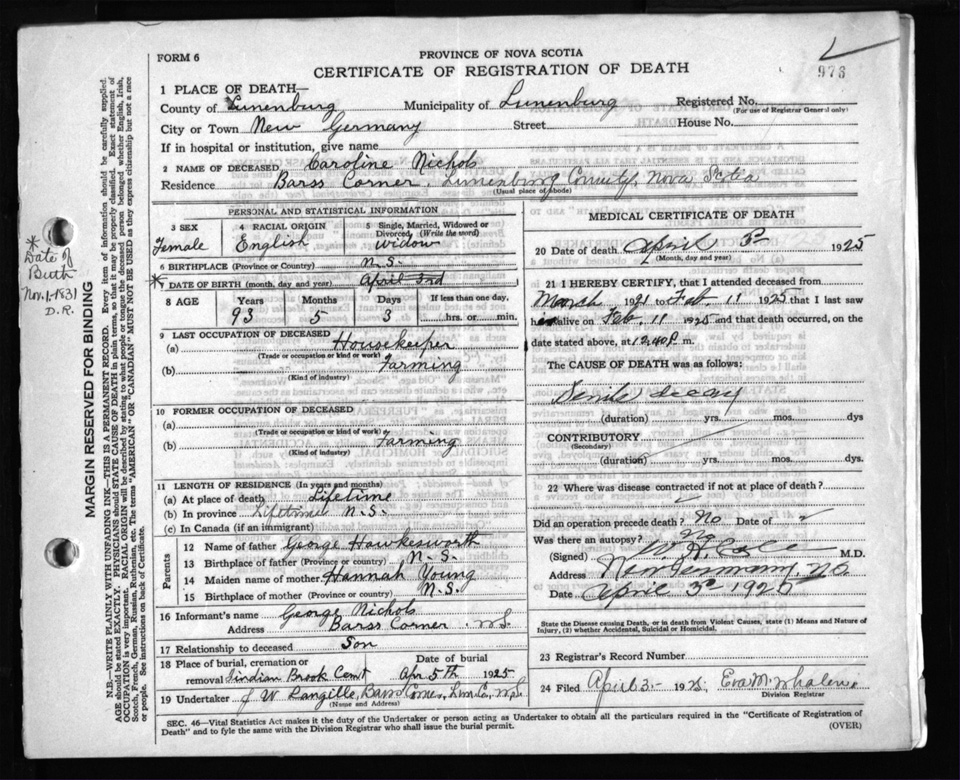 FORM 6
PROVINCE OF NOVA SCOTIA
CERTIFICATE OF REGISTRATION OF DEATH
973
1 PLACE OF DEATH—
County of Lunenburg Municipality of Lunenburg Registered No.
(For use of Registrar General only)
City or Town New Germany Street House No.
If in hospital or institution, give name
2 NAME OF DECEASED Caroline Nichols
Residence Barss Corner, Lunenburg County, Nova Scotia
(Usual place of abode)
PERSONAL AND STATISTICAL INFORMATION
3 SEX 4 RACIAL ORIGIN 5 Single, Married, Widowed or Divorced (Write the word)
Female English widow
6 BIRTHPLACE (Province or Country) N.S.
* 7 DATE OF BIRTH (month, day and year) April 3rd
8 AGE Years Months Days If less than one day,
93 5 3 hrs. or min.
9 LAST OCCUPATION OF DECEASED
(a) Housekeeper
(Trade or occupation or kind of work)
(b) Farming
(Kind of industry)
10 FORMER OCCUPATION OF DECEASED
(a)
(Trade or occupation or kind of work)
(b) Farming
(Kind of industry)
11 LENGTH OF RESIDENCE (In years and months)
(a) At place of death Lifetime
(b) In province Lifetime N.S.
(c) In Canada (if an immigrant)
Parents
12 Name of father George Hawkesworth
13 Birthplace of father (Province or country) N.S.
14 Maiden name of mother Hannah Young
15 Birthplace of mother (Province or country) N.S.
16 Informant's name George Nichols
Address Barss Corner N.S.
17 Relationship to deceased Son
18 Place of burial, cremation or removal Indian Brook Cemt Date of burial Apr 5th 1925
19 Undertaker J W Langille, Barss Corner, Lun Co, N.S.
(Name and Address)
MEDICAL CERTIFICATE OF DEATH
20 Date of death April 3rd 1925
(Month, day and year)
21 I HEREBY CERTIFY, that I attended deceased from
March 1921 to Feb 11 1925 that I last saw
h alive on Feb. 11 1925 and that death occurred, on the
date stated above, at 12.40 P. m.
The CAUSE OF DEATH was as follows:
Senile decay
(duration) yrs. mos. dys
CONTRIBUTORY
(Secondary)
(duration) yrs. mos. dys.
22 Where was disease contracted if not at place of death?
Did an operation precede death? No Date of
Was there an autopsy? No
(Signed) W. H. Cole M.D.
Address New Germany, N.S.
Date April 3rd 1925
State the Disease causing Death, or in death from Violent Causes, state (1) Means and Nature of Injury, (2) whether Accidental, Suicidal or Homicidal.
23 Registrar's Record Number
24 Filed April 3 1925 Eva M. Whalen
Division Registrar
SEC. 46—Vital Statistics Act makes it the duty of the Undertaker or person acting as Undertaker to obtain all the particulars required in the "Certificate of Registration of
Death" and to fyle the same with the Division Registrar who shall issue the burial permit. (OVER)
* Date of
Birth
Nov. 1-1831
D.R.
MARGIN RESERVED FOR BINDING
N.B.—WRITE PLAINLY WITH UNFADING INK—THIS IS A PERMANENT RECORD. Every item of information should be carefully supplied.
AGE should be stated EXACTLY. PHYSICIANS should STATE CAUSE OF DEATH in plain terms, that it may be properly classified. Exact statement of
OCCUPATION is very important. RACIAL ORIGIN will be described by stating to what people or tongue the deceased person belonged whether English, Irish,
Scotch, French, German, Russian, Ruthenian, etc. The terms "AMERICAN" OR "CANADIAN" MUST NOT BE USED as they express citizenship but not a race
or people. See instructions on back of Certificate.